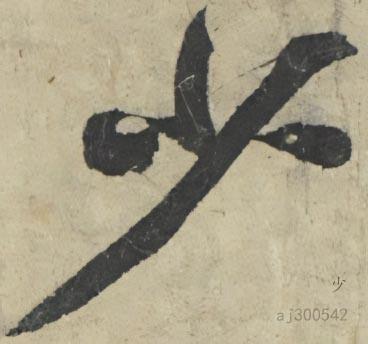 少
少
aj300542